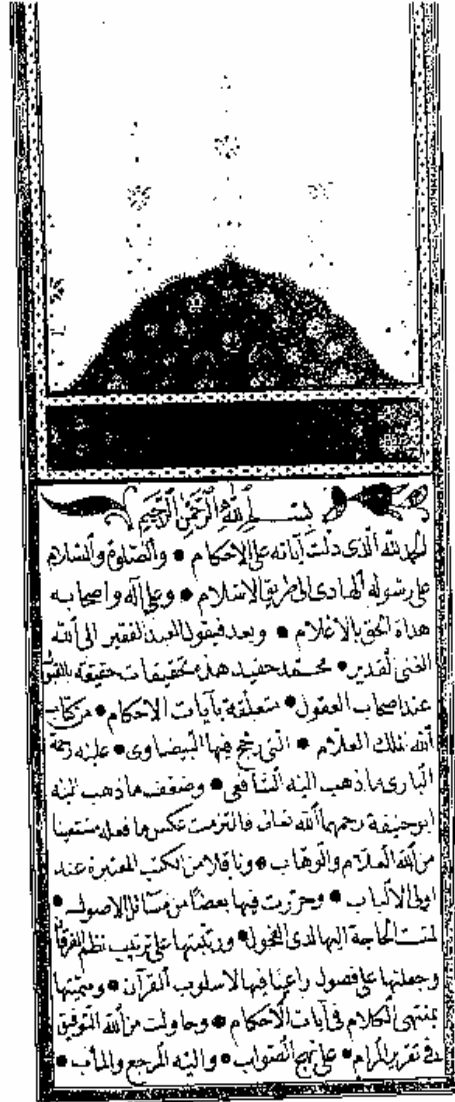 بسم الله الرحمن الرحيم
الحمد لله الذى دلت آياته على الاحكام • والصلوة والسلام
على رسوله الهادى الى طريق الاسلام • وعلى آله واصحابه
هداة الحق بالاعلام • وبعد فيقول العبد الفقير الى الله
الغنى القدير • محمد حفيد هذه تحقيقات حقيقة بالقبول
عند اصحاب العقول • متعلقة بآيات الاحكام • من كتاب
الله الملك العلام • التى رجح فيها البيضاوى • عليه رحمة
البارى ما ذهب اليه الشافعى • وضعف ما ذهب اليه
ابو حنيفة رحمهما الله تعالى فالتزمت عكس ما فعله مستعينا
من الله العلام والوهاب • وناقلا من الكتب المعتبرة عند
اولى الالباب • وحررت فيها بعضا من مسائل الاصول •
لمست الحاجة اليها لدى الفحول • ورتبتها على ترتيب نظم الفرقان
وجعلتها على فصول راعيا فيها لاسلوب القرآن • وسميتها
بمنتهى الكلام فى آيات الاحكام • وحاولت من الله التوفيق
فى تقرير المرام • على نهج الصواب • واليه المرجع والمآب •